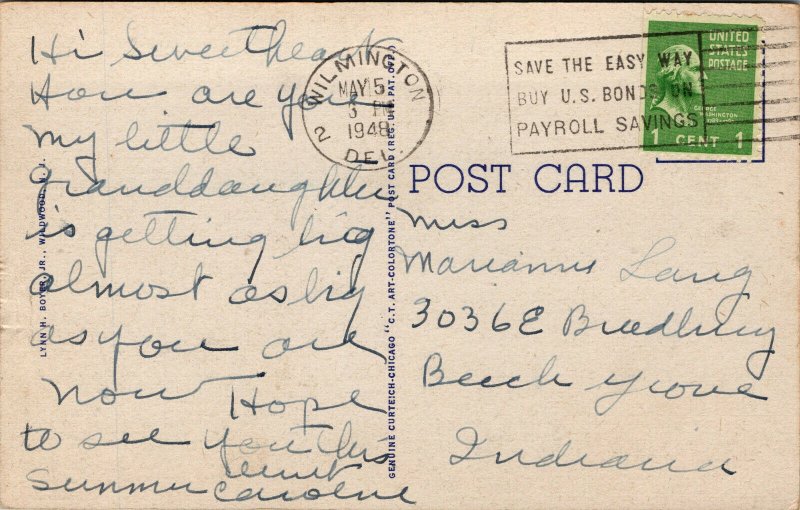 Hi Sweetheart
How are you
my little
Granddaughter
is getting big
almost as big
as you are
now Hope
to see you this
summer aunt
Caroline
WILMINGTON
MAY 5
3 PM
1948
2
DEL.
SAVE THE EASY WAY
BUY U.S. BONDS ON
PAYROLL SAVINGS
UNITED
STATES
POSTAGE
GEORGE
WASHINGTON
1 CENT 1
POST CARD
Miss
Marianne Lang
3036 E
Beech Grove
Indiana
LYNN H. BOYER, JR., WILDWOOD, N. J.
GENUINE CURTEICH-CHICAGO "C.T. ART-COLORTONE" POST CARD (REG. U.S. PAT. OFF.)